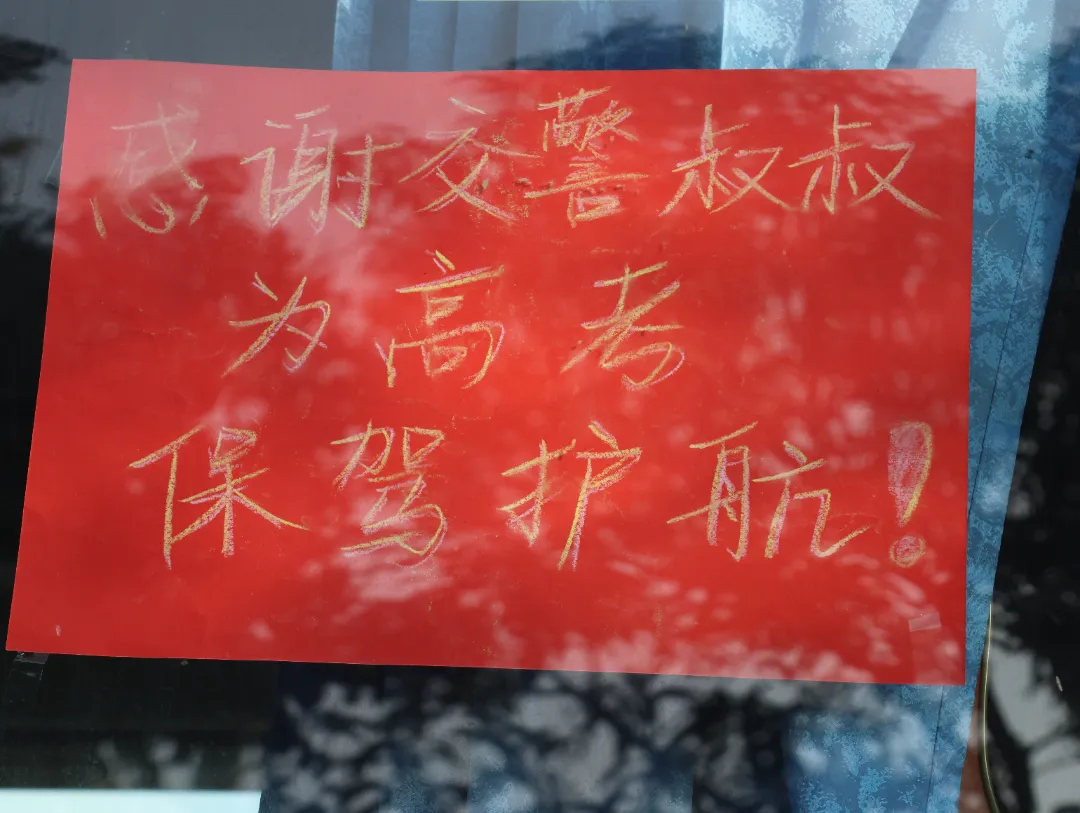 感谢交警叔叔
为高考
保驾护航！